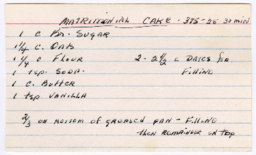 MATRIMONIAL CAKE - 375-25-30 min
1 C Br. SUGAR
1 1/4 C. OATS
1 1/4 C FLOUR
2-2 1/2 c DATES for
FILLING
1 tsp. SODA.
1 C. BUTTER
1 tsp VANILLA
2/3 on BOTTOM OF GREASED PAN - FILLING
then REMAINDER on top